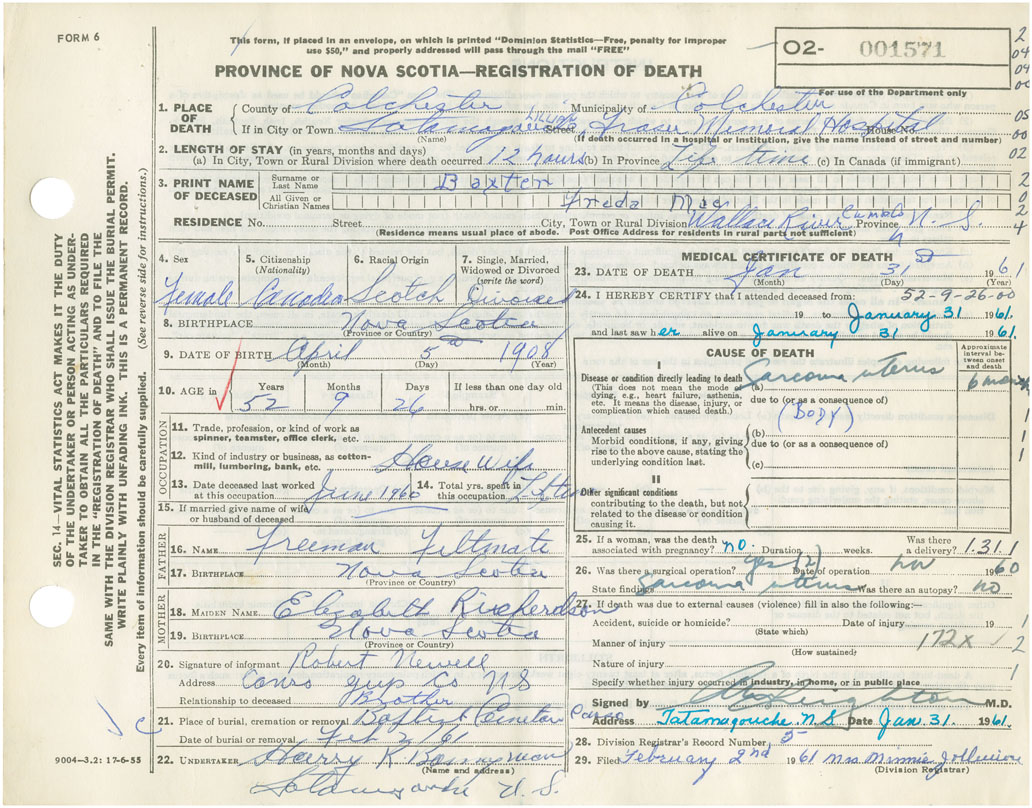 FORM 6
This form, if placed in an envelope, on which is printed "Dominion Statistics—Free, penalty for improper
use $50," and properly addressed will pass through the mail "FREE"
02- 001571
PROVINCE OF NOVA SCOTIA—REGISTRATION OF DEATH
For use of the Department only
1. PLACE OF DEATH County of Colchester Municipality of Colchester
If in City or Town LILLIAN Street Fraser Memorial Hospital House No.
(Name) (If death occurred in a hospital or institution, give the name instead of street and number)
2. LENGTH OF STAY (in years, months and days)
(a) In City, Town or Rural Division where death occurred 12 hours (b) In Province Life time (c) In Canada (if immigrant)
3. PRINT NAME OF DECEASED Surname or Last Name Baxter
All Given or Christian Names Freda Mae
RESIDENCE No. Street City, Town or Rural Division Wallace River Cumb Province N. S.
(Residence means usual place of abode. Post Office Address for residents in rural parts not sufficient)
4. Sex Female
5. Citizenship (Nationality) Canada
6. Racial Origin Scotch
7. Single, Married, Widowed or Divorced (write the word) Divorced
8. BIRTHPLACE Nova Scotia
(Province or Country)
9. DATE OF BIRTH April 5th 1908
(Month) (Day) (Year)
10. AGE in Years Months Days If less than one day old
52 9 26 hrs. or min.
OCCUPATION
11. Trade, profession, or kind of work as spinner, teamster, office clerk, etc.
12. Kind of industry or business, as cotton-mill, lumbering, bank, etc. House Wife
13. Date deceased last worked at this occupation June 1960 14. Total yrs. spent in this occupation
15. If married give name of wife or husband of deceased
FATHER
16. NAME Freeman Feltmate
17. BIRTHPLACE Nova Scotia
(Province or Country)
MOTHER
18. MAIDEN NAME Elizabeth Richerdson
19. BIRTHPLACE Nova Scotia
(Province or Country)
20. Signature of informant Robert Newell
Address Canso Guy Co NS
Relationship to deceased Brother
21. Place of burial, cremation or removal Baptist Cemetery Canso
Date of burial or removal Feb 2/61
22. UNDERTAKER Harry R
(Name and address)
N. S.
9004—3.2: 17-6-55
MEDICAL CERTIFICATE OF DEATH
23. DATE OF DEATH Jan 31st 1961
(Month) (Day) (Year)
24. I HEREBY CERTIFY that I attended deceased from: 52-9-26-00
19 to January 31 1961
and last saw her alive on January 31 1961.
CAUSE OF DEATH
Approximate interval between onset and death
I
Disease or condition directly leading to death (a) Sarcoma uterus 6 mos
(This does not mean the mode of dying, e.g., heart failure, asthenia, etc. It means the disease, injury, or complication which caused death.)
due to (or as a consequence of)
(BODY)
Antecedent causes
Morbid conditions, if any, giving rise to the above cause, stating the underlying condition last.
(b)
due to (or as a consequence of)
(c)
II
Other significant conditions
contributing to the death, but not related to the disease or condition causing it.
25. If a woman, was the death associated with pregnancy? no. Duration weeks. Was there a delivery? 1.31.1
26. Was there a surgical operation? yes Date of operation 1960
State findings Sarcoma uterus Was there an autopsy? no
27. If death was due to external causes (violence) fill in also the following:—
Accident, suicide or homicide? Date of injury 19
(State which)
Manner of injury 172X
(How sustained)
Nature of injury
Specify whether injury occurred in industry, in home, or in public place
Signed by M.D.
Address Tatamagouche N.S Date Jan. 31. 1961.
28. Division Registrar's Record Number 5
29. Filed February 2nd 1961 Mrs Minnie
(Division Registrar)
SEC. 14—VITAL STATISTICS ACT MAKES IT THE DUTY
OF THE UNDERTAKER OR PERSON ACTING AS UNDER-
TAKER TO OBTAIN ALL THE PARTICULARS REQUIRED
IN THE "REGISTRATION OF DEATH" AND TO FILE THE
SAME WITH THE DIVISION REGISTRAR WHO SHALL ISSUE THE BURIAL PERMIT.
WRITE PLAINLY WITH UNFADING INK. THIS IS A PERMANENT RECORD.
Every item of information should be carefully supplied. (See reverse side for instructions.)